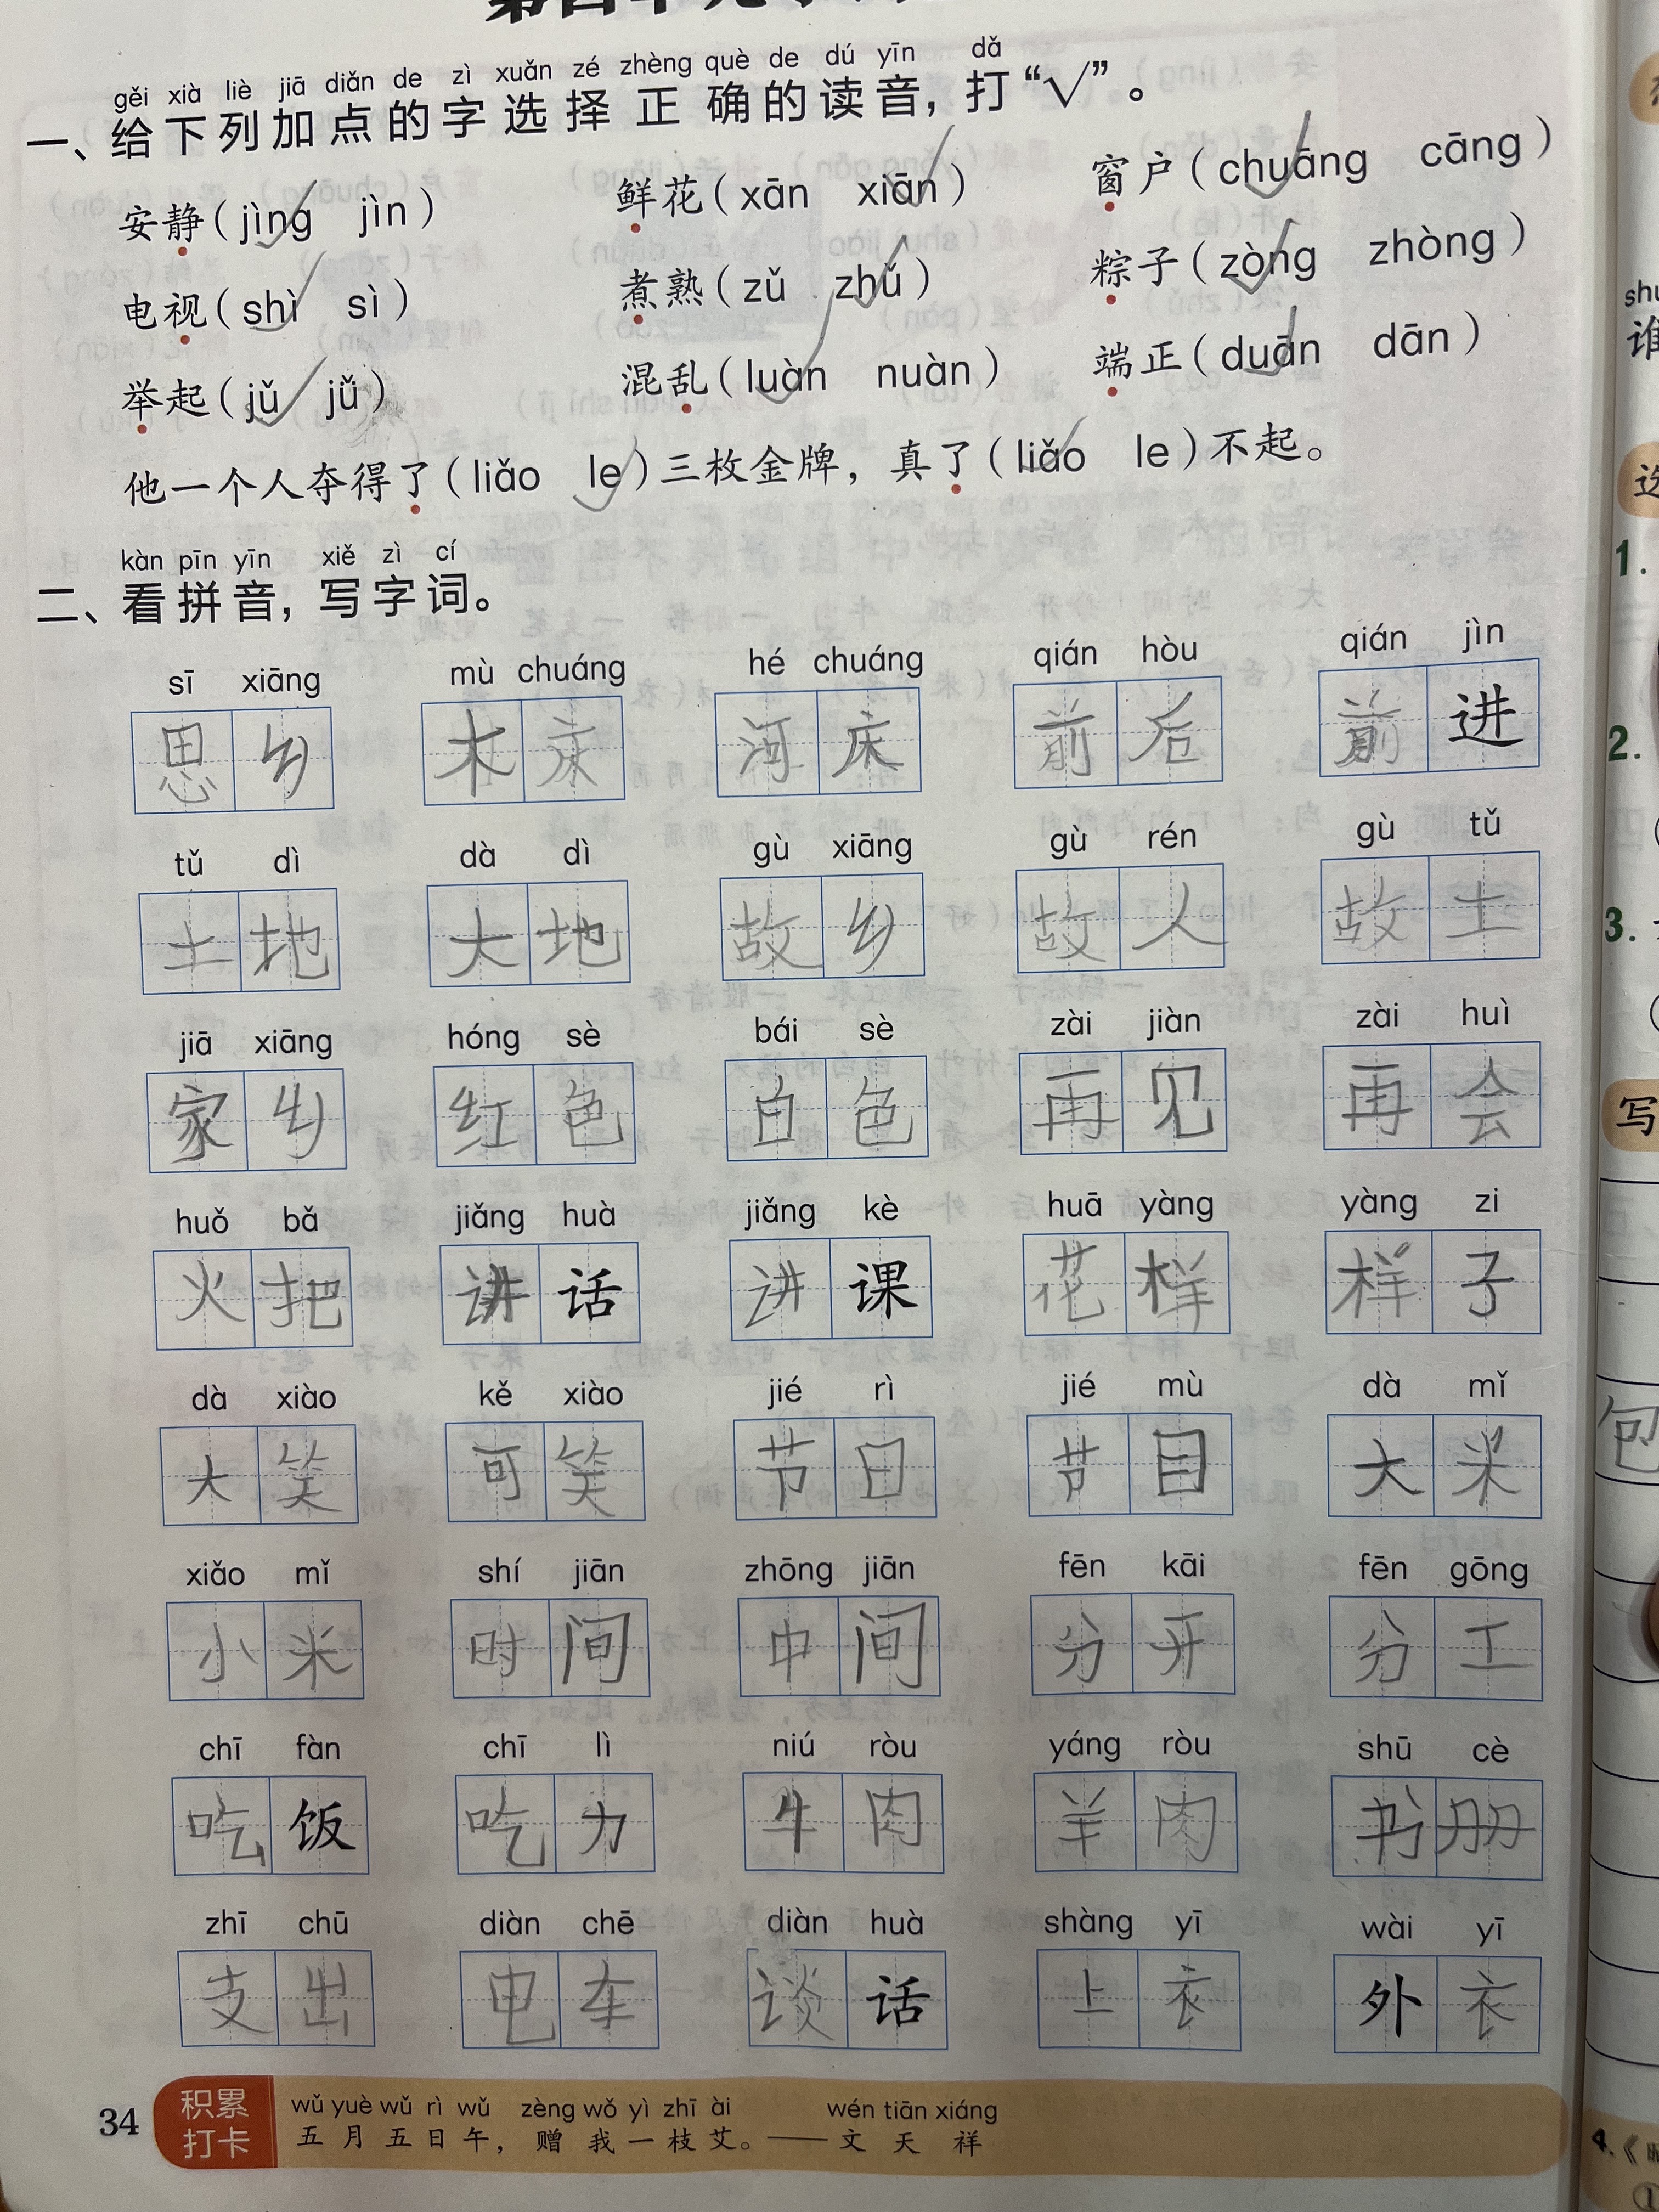 gěi xià liè jiā diǎn de zì xuǎn zé zhèng què de dú yīn dǎ
一、给下列加点的字选择正确的读音，打“√”。
安静（jìng jìn） 鲜花（xān xiān） 窗户（chuāng cāng）
电视（shì sì） 煮熟（zǔ zhǔ） 粽子（zòng zhòng）
举起（jǔ jǚ） 混乱（luàn nuàn） 端正（duān dān）
他一个人夺得了（liǎo le）三枚金牌，真了（liǎo le）不起。
kàn pīn yīn xiě zì cí
二、看拼音，写字词。
sī xiāng mù chuáng hé chuáng qián hòu qián jìn
思乡 木床 河床 前后 前进
tǔ dì dà dì gù xiāng gù rén gù tǔ
土地 大地 故乡 故人 故土
jiā xiāng hóng sè bái sè zài jiàn zài huì
家乡 红色 白色 再见 再会
huǒ bǎ jiǎng huà jiǎng kè huā yàng yàng zi
火把 讲话 讲课 花样 样子
dà xiào kě xiào jié rì jié mù dà mǐ
大笑 可笑 节日 节目 大米
xiǎo mǐ shí jiān zhōng jiān fēn kāi fēn gōng
小米 时间 中间 分开 分工
chī fàn chī lì niú ròu yáng ròu shū cè
吃饭 吃力 牛肉 羊肉 书册
zhī chū diàn chē diàn huà shàng yī wài yī
支出 电车 谈话 上衣 外衣
34
积累
打卡
wǔ yuè wǔ rì wǔ zèng wǒ yì zhī ài wén tiān xiáng
五月五日午，赠我一枝艾。——文天祥
shu
谁
选
1.
2.
3.
写
包
4.《
①